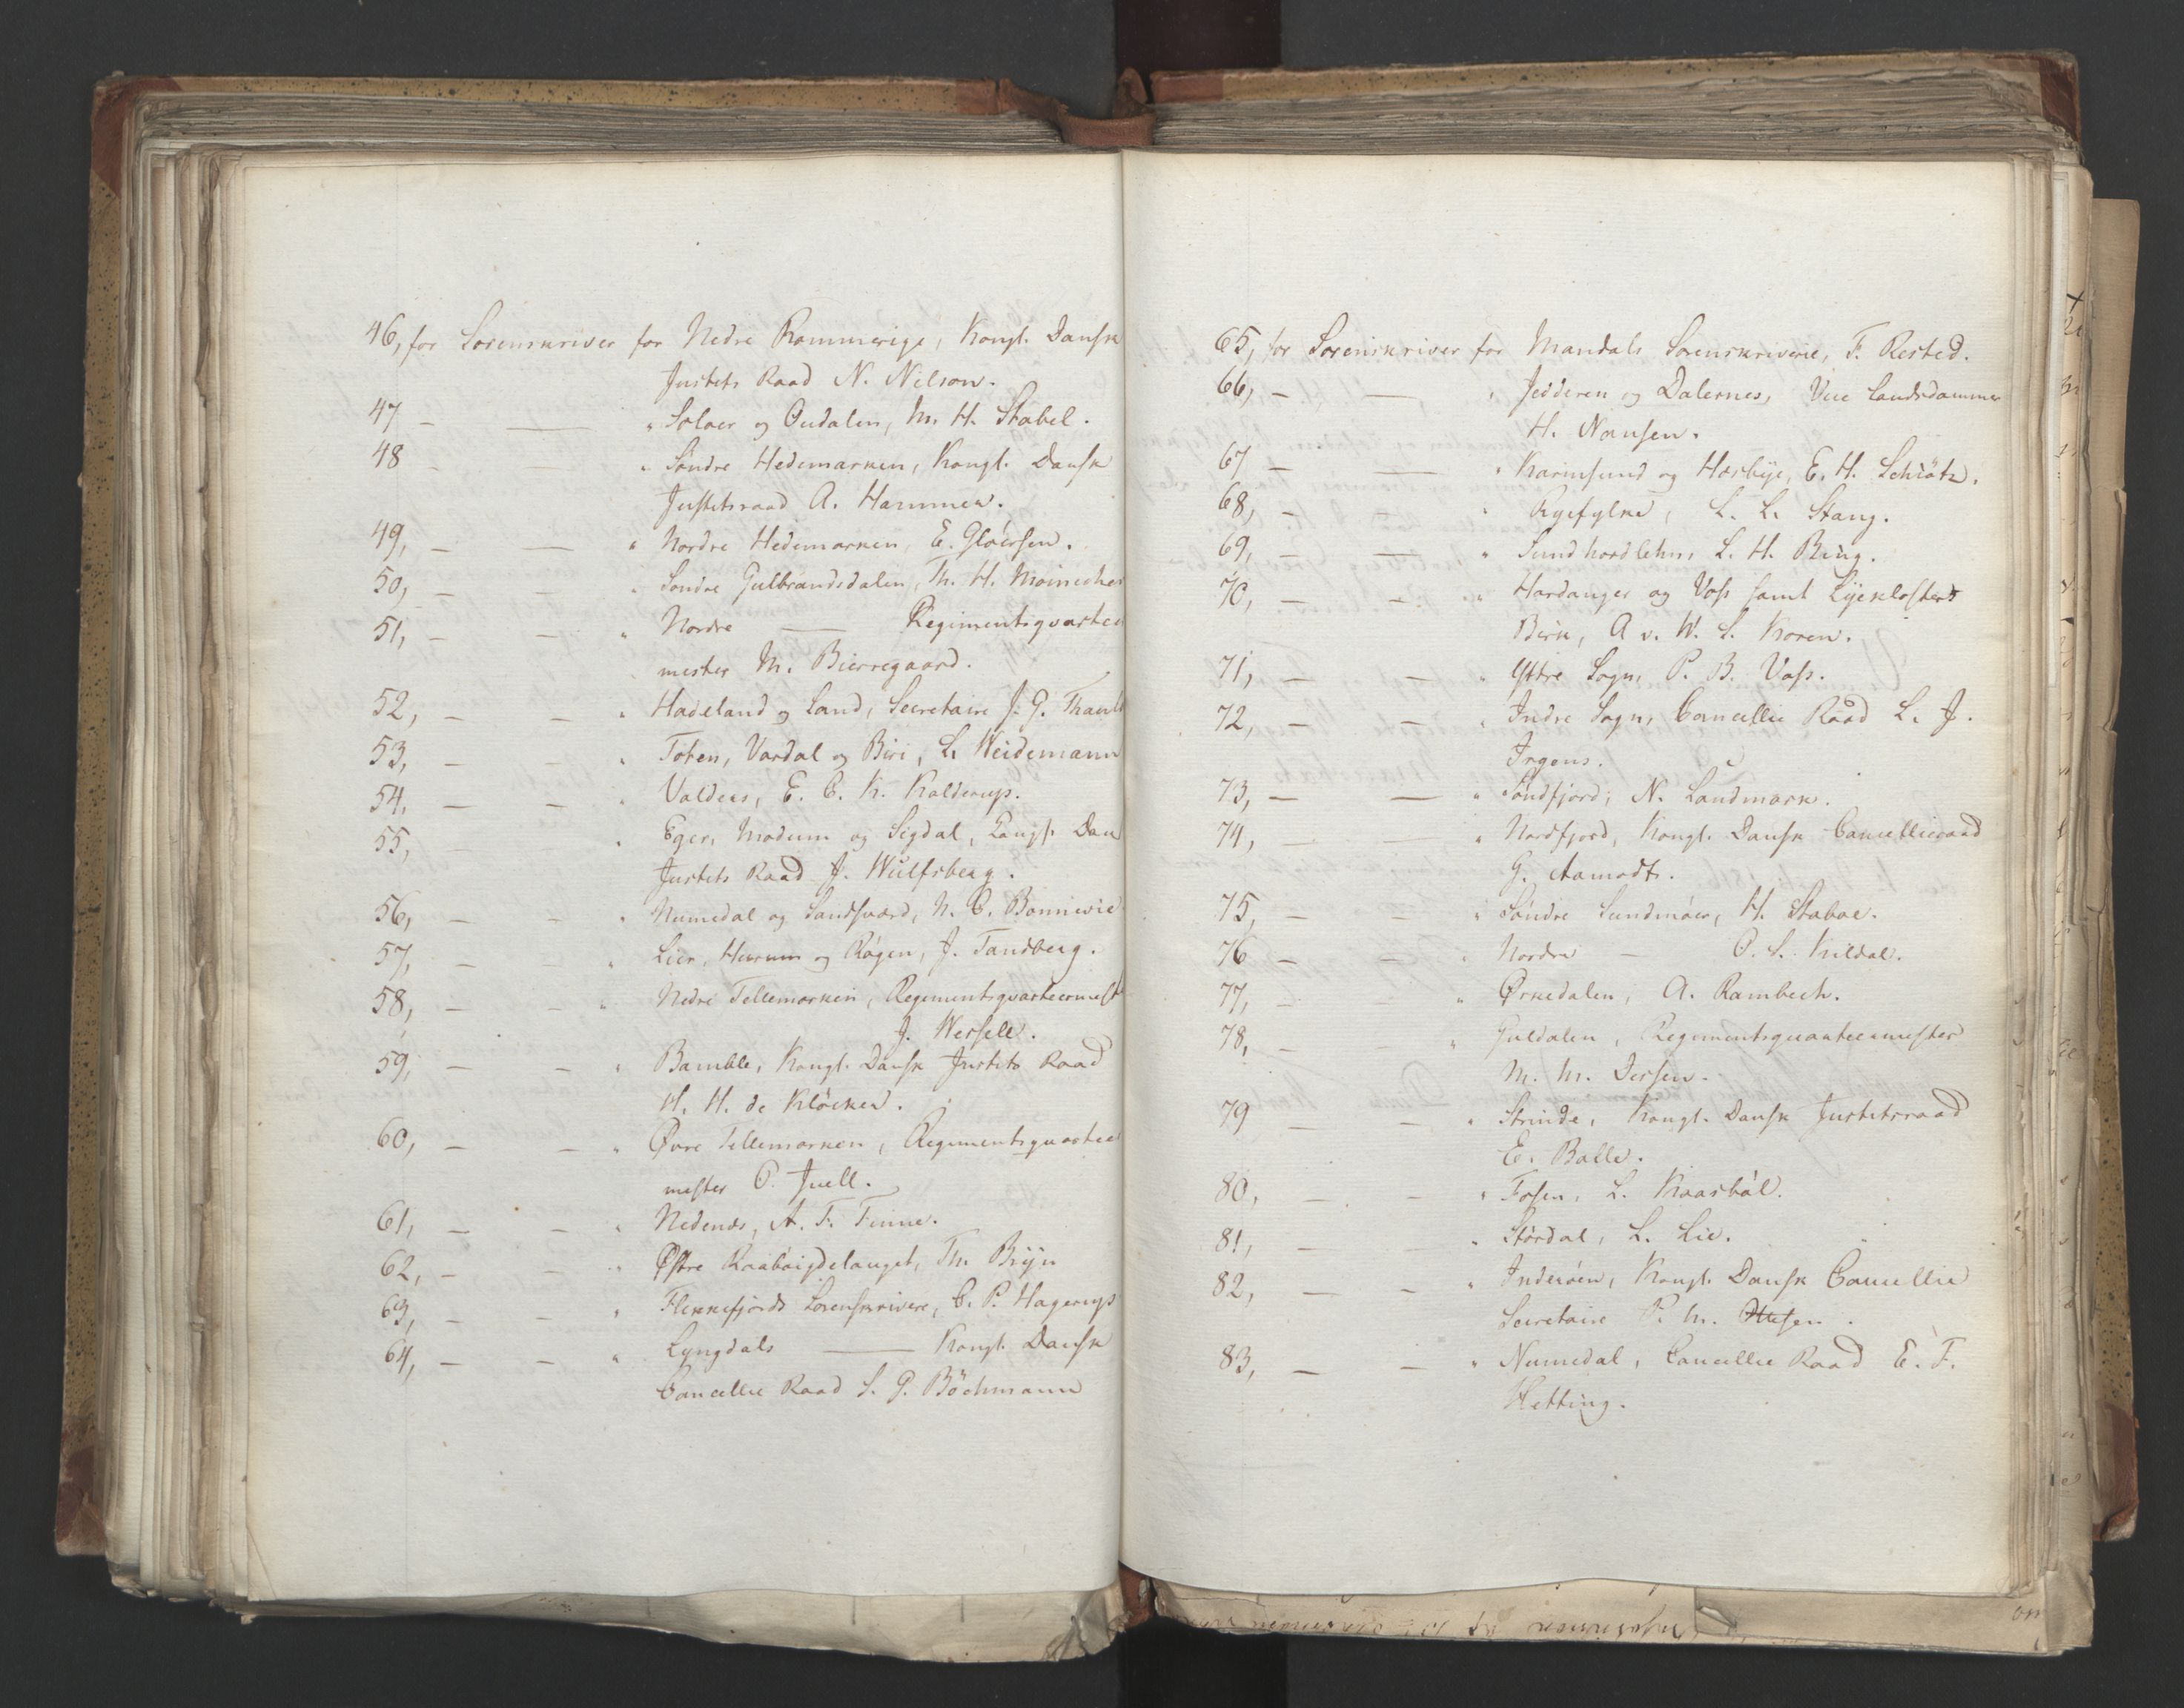 46, for Sorenskriver for Nedre Rommerige, Kongl. Dansk
Justits Raad N. Nilson.
47 – — " Soloer og Oudalen, M. H. Stabel.
48 – — " Søndre Hedemarken, Kongl. Dansk
Justitsraad A. Hammer.
49, – — " Nordre Hedemarken, E. Gløersen.
50, – – " Søndre Gulbrandsdalen, Th. H. Moinichen
51, – – " Nordre — Regimentsqvarteer
mester M. Bierregaard.
52, – – " Hadeland og Land, Secretaire J. G. Thaulo
53, – – " Toten, Vardal og Biri, L. Weidemann
54, – – " Valders, E. C. K. Kalderup.
55, – " Eger, Modum og Sigdal, Kongl. Dan
Justits Raad J. Wulfsberg.
56, – – " Numedal og Sandsværd, N. C. Bonnevie
57, – – " Lier, Hurum og Røgen, J. Tandberg.
58, – – " Nedre Tellemarken, Regimentsqvarteermest
J. Wessell.
59, – – " Bamble, Kongl. Dansk Justits Raad
H. H. de Kløcker.
60, – – " Øvre Tellemarken, Regimentsqvarteer
mester O. Juell.
61, – – " Nedenæs, A. F. Finne.
62, – – " Østre Raabøigdelauget, Th. Bryn
63, – – " Flekkefjords Sorenskriverie, C. P. Hagerup
64, – – " Lyngdals — Kongl. Dansk
Cancellie Raad S. P. Böchmann
65, for Sorenskriver for Mandals Sorenskriverie, F. Rested.
66, – — " Jedderen og Dalernes, Vice Landsdommer
H. Nansen.
67 – — " Karmsund og Hesbye, E. H. Schiøtz.
68, – – " Ryefylke, L. L. Stang.
69, – — " Sundhordlehn, L. H. Bing.
70, – – " Hardanger og Voss samt Lyeklosters
Birk, A v. W. S. Koren.
71, – – " Yttre Sogn, P. B. Voss.
72, – – " Indre Sogn, Cancellie Raad L. J.
Irgens.
73, – — " Søndfjord, N. Landmark.
74, – — " Nordfjord, Kongl. Dansk Cancellieraad
G. Aamodt.
75, – – " Søndre Sundmøer, H. Staboe.
76 – – " Nordre – O. S. Kildal.
77, – " Ørkedalen, A. Rambech.
78, – " Guldalen, Regimentsqvarteermester
M. M.
79 – – " Strinde, Kongl. Dansk Justitsraad
E. Balle.
80, – – " Fosen, L. Kaasbøl.
81, – " Størdal, L. Lie.
82, – – " Inderøen, Kongl. Dansk Cancellie
Secretaire P. M.
83, – – " Numedal, Cancellie Raad E. F.
Hetting.